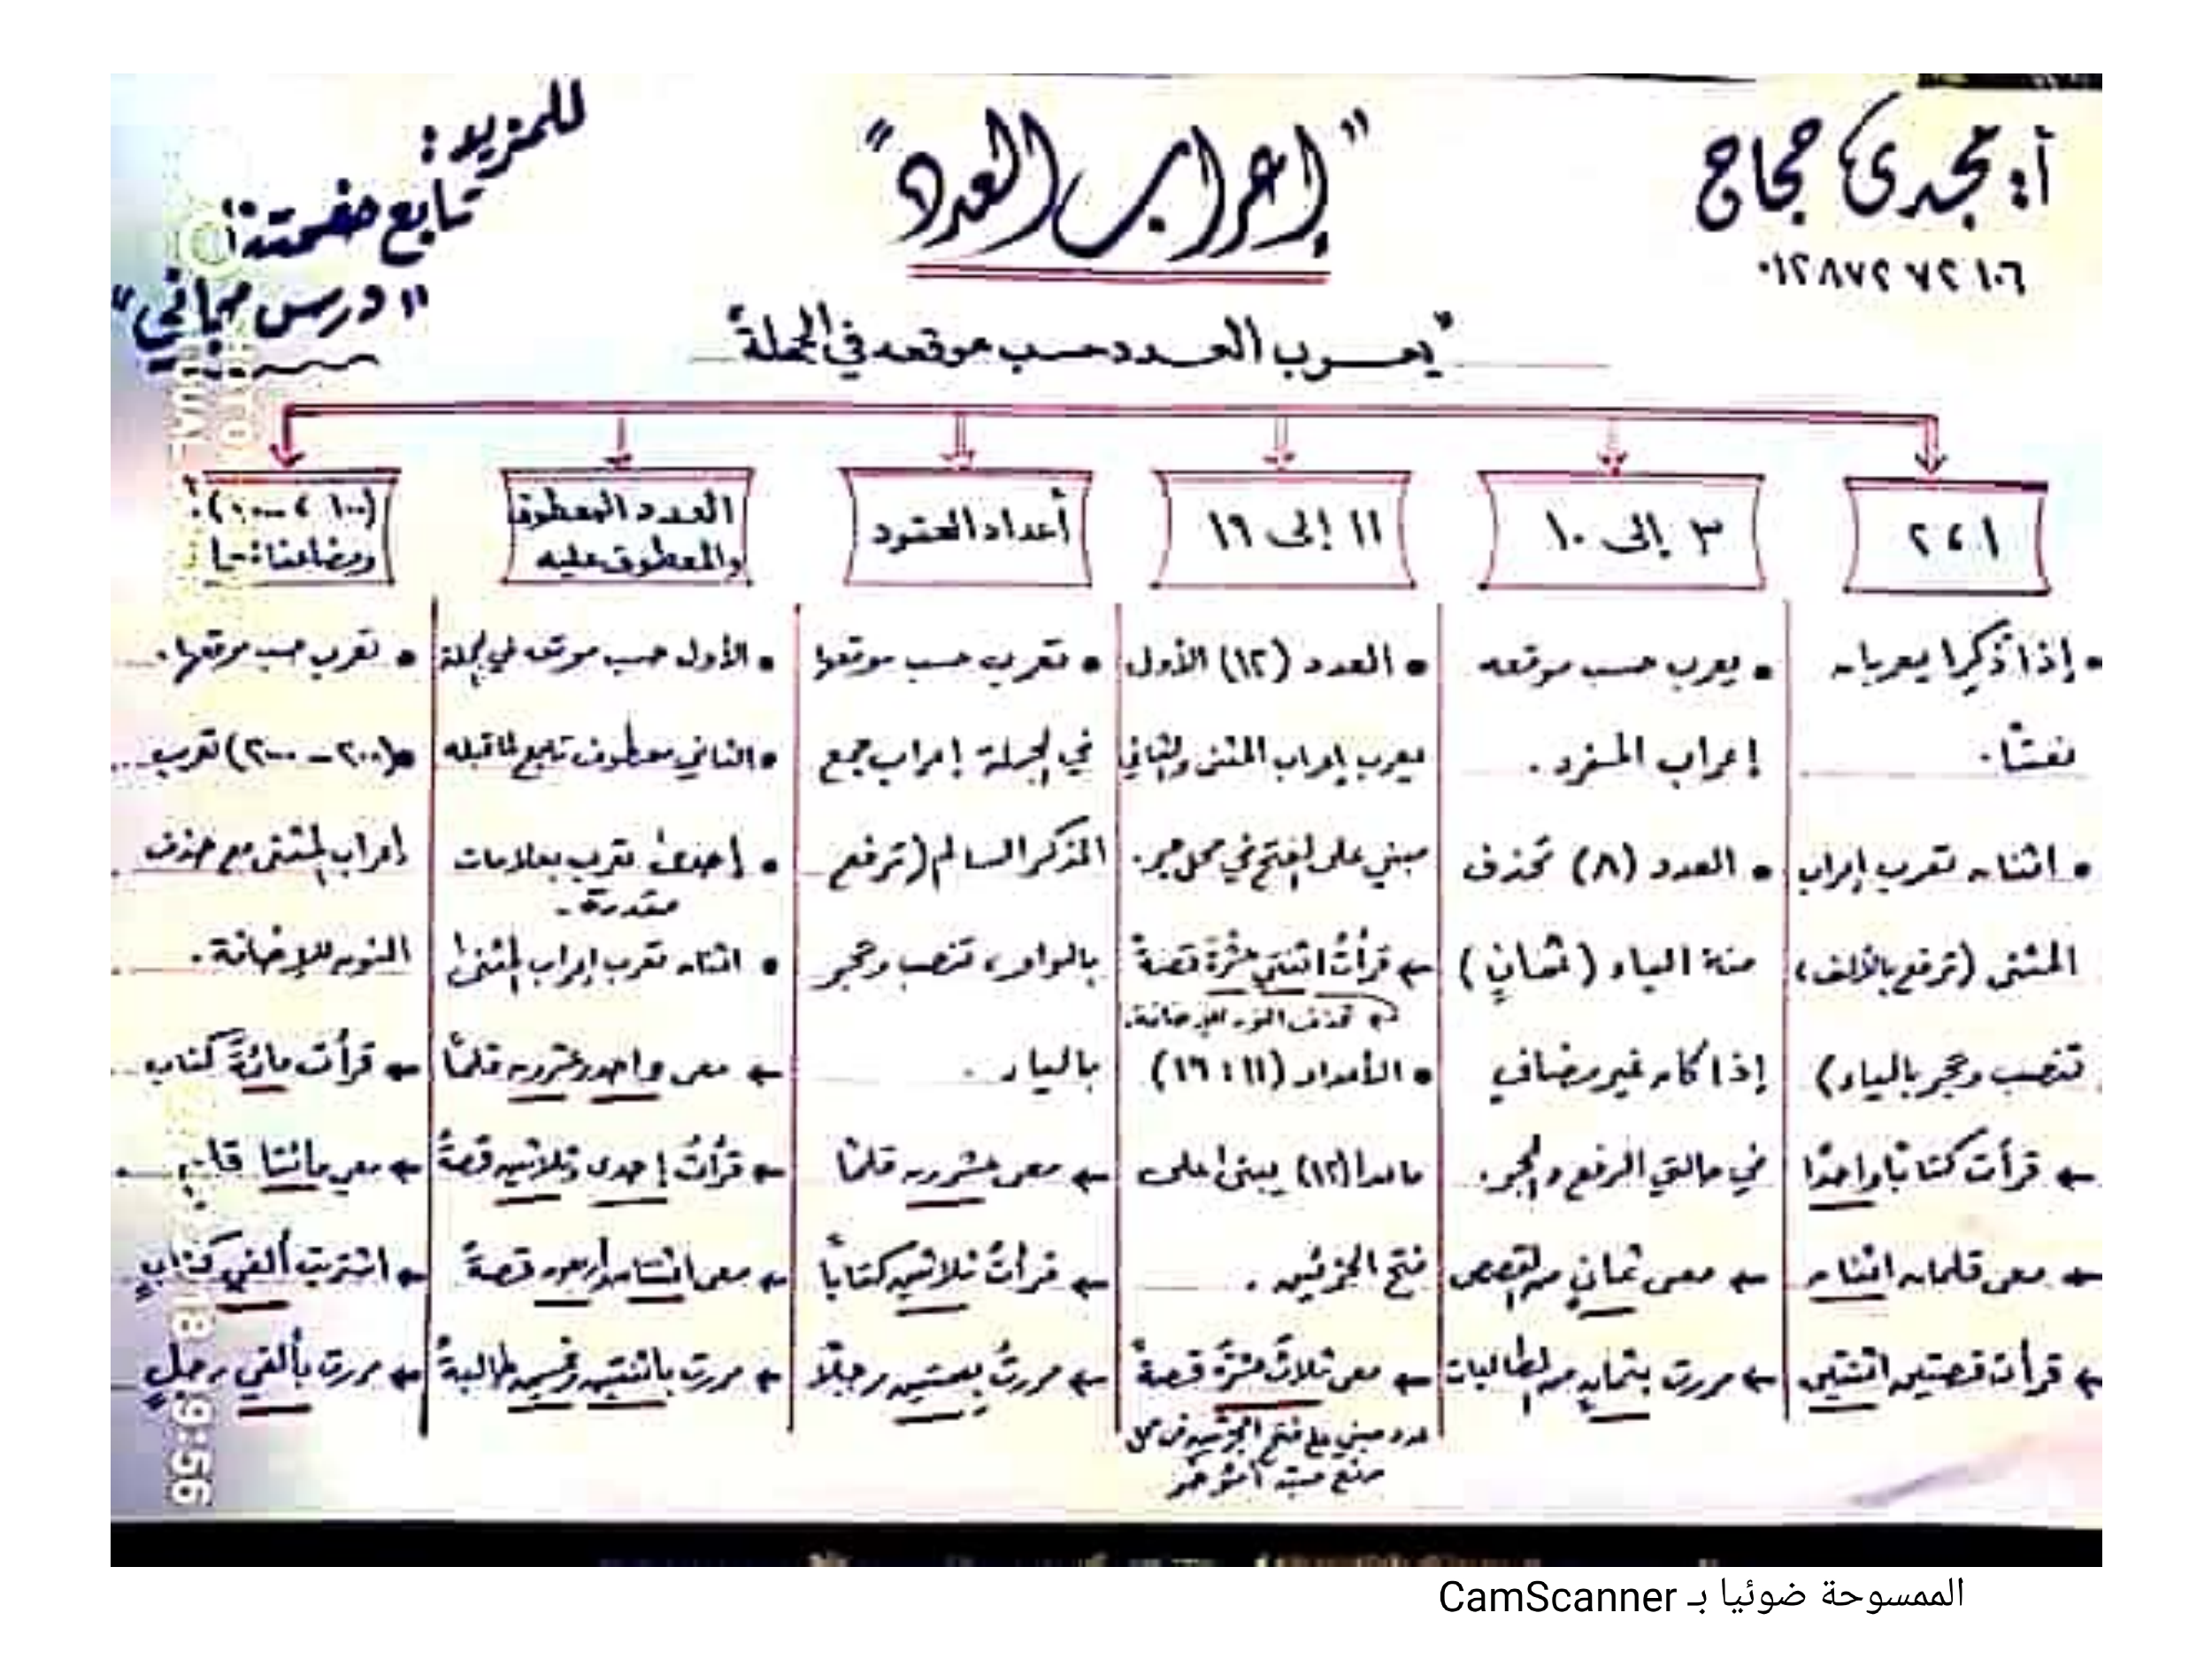 أ: مجدى حجاج
٠١٢٨٧٢٧٢١٠٦
"إعراب العدد"
للمزيد:
تابع صفحتنا
"درس مجاني"
"يعرب العدد حسب موقعه في الجملة"
١ ، ٢
• إذا ذُكِرا يعربان
نعتًا.
• اثنان تعرب إعراب
المثنى (ترفع بالألف،
تنصب وتجر بالياء)
← قرأت كتابًا واحدًا
← معى قلمان اثنان
← قرأت قصتين اثنتين
٣ إلى ١٠
• يعرب حسب موقعه
إعراب المفرد.
• العدد (٨) تحذف
منه الياء (ثمانٍ)
إذا كان غير مضاف
في حالتي الرفع والجر.
← معى ثمانٍ من القصص
← مررت بثمانٍ من الطالبات
١١ إلى ١٩
• العدد (١٢) الأول
يعرب إعراب المثنى والثاني
مبني على الفتح في محل جر.
← قرأتُ اثنتي عشرةَ قصةً
تحذف النون للإضافة.
• الأعداد (١١ : ١٩)
ماعدا (١٢) يبنى على
فتح الجزئين.
← معى ثلاثَ عشرةَ قصةً
عدد مبني على فتح الجزئين في محل
رفع مبتدأ مؤخر
أعداد العقود
• تعرب حسب موقعها
في الجملة إعراب جمع
المذكر السالم (ترفع
بالواو، تنصب وتجر
بالياء.
← معى عشرون قلمًا
← قرأتُ ثلاثين كتابًا
← مررتُ بعشرين رجلًا
العدد المعطوف
والمعطوف عليه
• الأول حسب موقعه في الجملة
• الثاني معطوف تابع لما قبله
• إحدى تعرب بعلامات
مقدرة.
• اثنان تعرب إعراب المثنى
← معى واحد وعشرون قلمًا
← قرأتُ إحدى وثلاثين قصةً
← معى اثنتان وأربعون قصةً
← مررت باثنتين وخمسين طالبةً
(١٠٠ ، ١٠٠٠)
ومضاعفاتها
• تعرب حسب موقعها.
• (٢٠٠ - ٢٠٠٠) تعرب
إعراب المثنى مع حذف
النون للإضافة.
← قرأت مائةَ كتاب
← معى مائتا قلم
← اشتريت ألفي كتابٍ
← مررت بألفي رجلٍ
9:56
الممسوحة ضوئيا بـ CamScanner